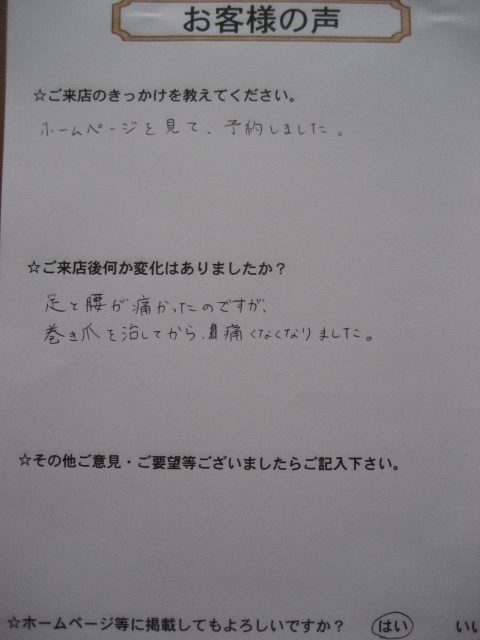 お客様の声
☆ご来店のきっかけを教えてください。
ホームページを見て、予約しました。
☆ご来店後何か変化はありましたか？
足と腰が痛かったのですが、
巻き爪を治してから、痛くなくなりました。
☆その他ご意見・ご要望等ございましたらご記入下さい。
☆ホームページ等に掲載してもよろしいですか？ はい いい